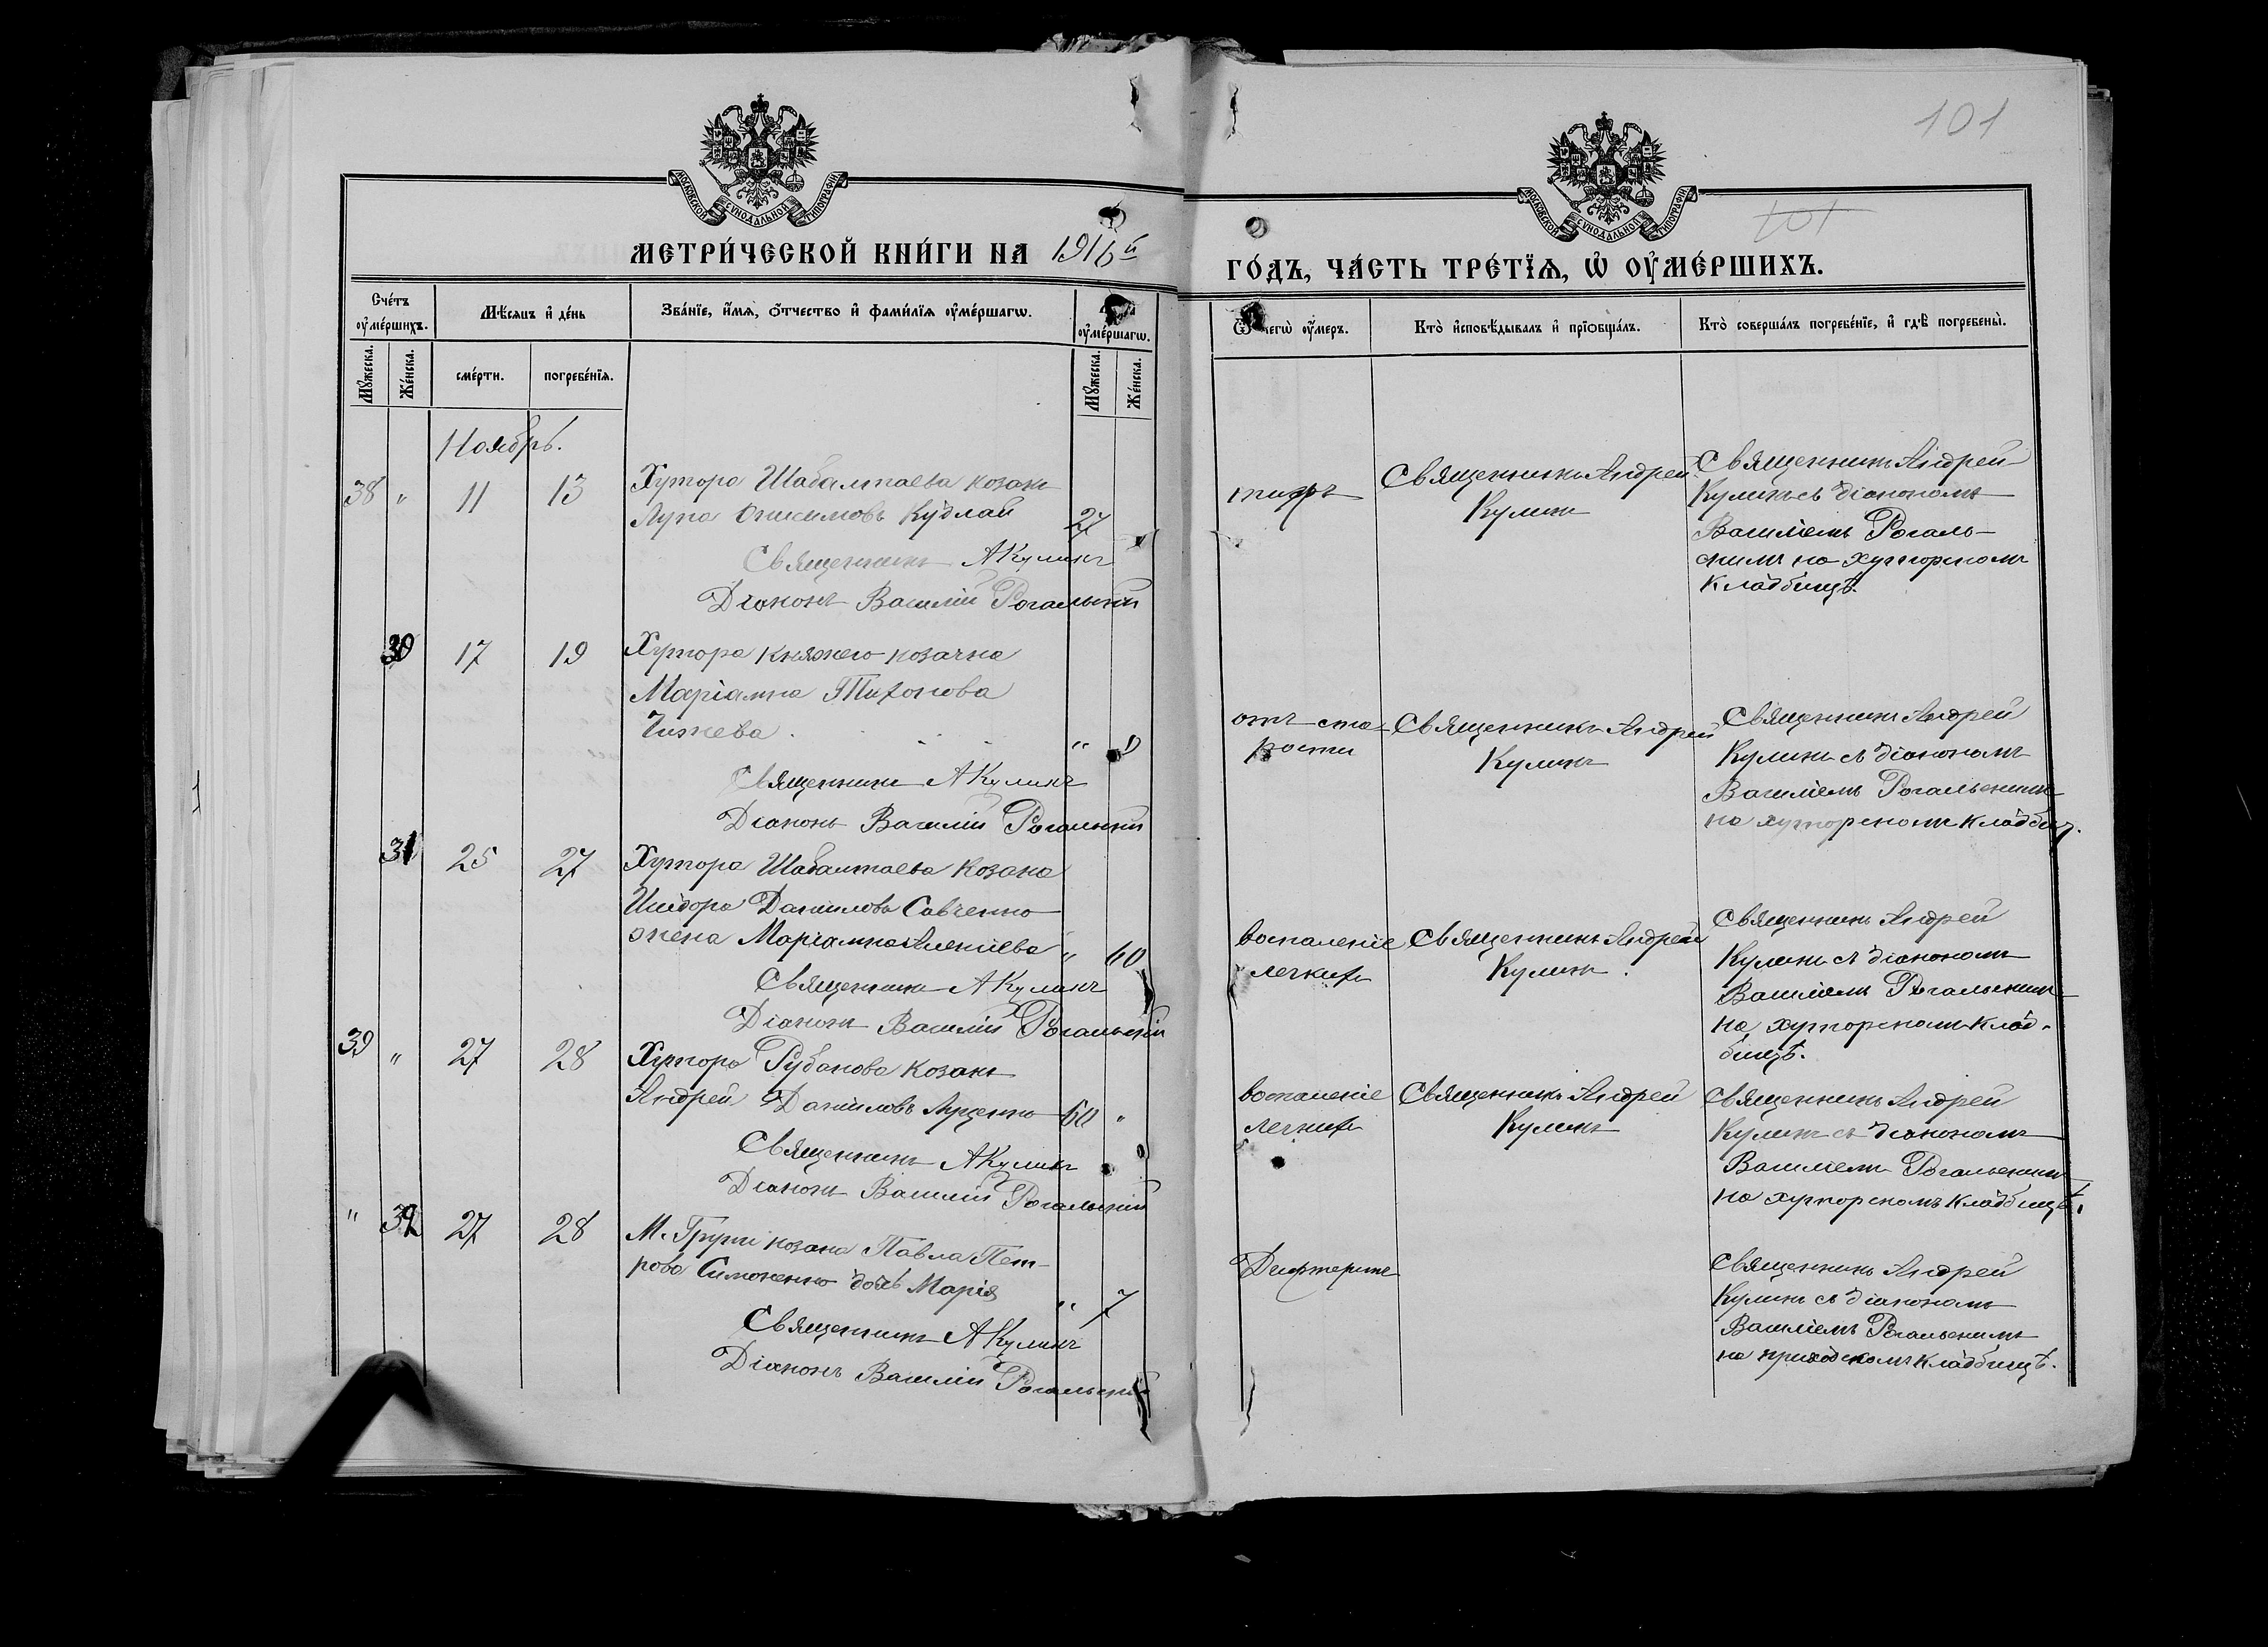 101
101
МОСКОВСКОЙ СУНОДАЛЬНОЙ ТИПОГРАФІИ
МОСКОВСКОЙ СУНОДАЛЬНОЙ ТИПОГРАФІИ
МЕТРИ́ЧЕСКОЙ КНИ́ГИ НА 1916й
ГО́ДЪ, ЧА́СТЬ ТРЕ́ТЇѦ, Ѡ҆ ОУ҆МЕ́РШИХЪ.
Сче́тъ оу҆ме́ршихъ.
Мꙋжеска.
Же́нска.
Мѣ́сяцъ и҆ де́нь
сме́рти.
погребе́нїѧ.
Зва́нїе, и҆́мѧ, ѻ҆́тчество и҆ фами́лїѧ оу҆ме́ршагѡ.
оу҆ме́ршагѡ.
Мꙋжеска.
Же́нска.
Ѿ чегѡ̀ оу҆́меръ.
Кто̀ и҆сповѣ́дывалъ и҆ прїѡбща́лъ.
Кто̀ соверша́лъ погребе́нїе, и҆ гдѣ̀ погребены̀.
Ноябрь.
38 " 11 13 Хутора Шабалтаева козакъ
Лупа Онисимовъ Кудлай 27
Священникъ А Куликъ
Діаконъ Василій Рогальскій
тифъ
Священникъ Андрей
Куликъ
Священникъ Андрей
Куликъ съ діакономъ
Василіемъ Рогаль-
скимъ на хуторскомъ
кладбищѣ.
30 17 19 Хутора Княжего козачка
Маріамна Тихонова
Чижева "
Священникъ А Куликъ
Діаконъ Василій Рогальскій
отъ ста-
рости
Священникъ Андрей
Куликъ
Священникъ Андрей
Куликъ съ діакономъ
Василіемъ Рогальскимъ
на хуторскомъ кладбищ.
31 25 27 Хутора Шабалтаева козака
Исидора Данилова Савченко
жена Маріамна Алексіева " 60
Священникъ А Куликъ
Діаконъ Василій Рогальскій
воспаленіе
легкихъ
Священникъ Андрей
Куликъ.
Священникъ Андрей
Куликъ съ діакономъ
Василіемъ Рогальскимъ
на хуторскомъ клад-
бищѣ.
39 " 27 28 Хутора Рубанова козакъ
Андрей Даниловъ Луценко 60 "
Священникъ А Куликъ
Діаконъ Василій Рогальскій
воспаленіе
легкихъ
Священникъ Андрей
Куликъ
Священникъ Андрей
Куликъ съ діакономъ
Василіемъ Рогальскимъ
на хуторскомъ кладбищѣ.
" 32 27 28 М. Груни козака Павла Пет-
рова Симоненко дочь Марія " 7
Священникъ А Куликъ
Діаконъ Василій Рогальскій
Дифтеритъ
Священникъ Андрей
Куликъ съ діакономъ
Василіемъ Рогальскимъ
на приходскомъ кладбищѣ.